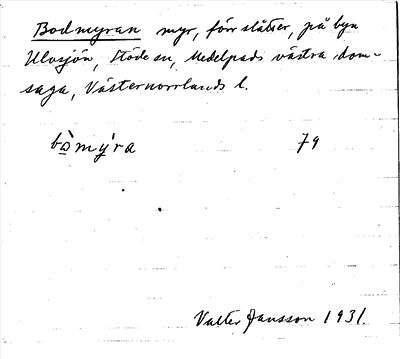 Bodmyran myr, förr slåtter, på byn
Ulvsjön, Stöde sn, Medelpads västra dom-
saga, Västernorrlands l.
bòmýra 79
Valter Jansson 1931.